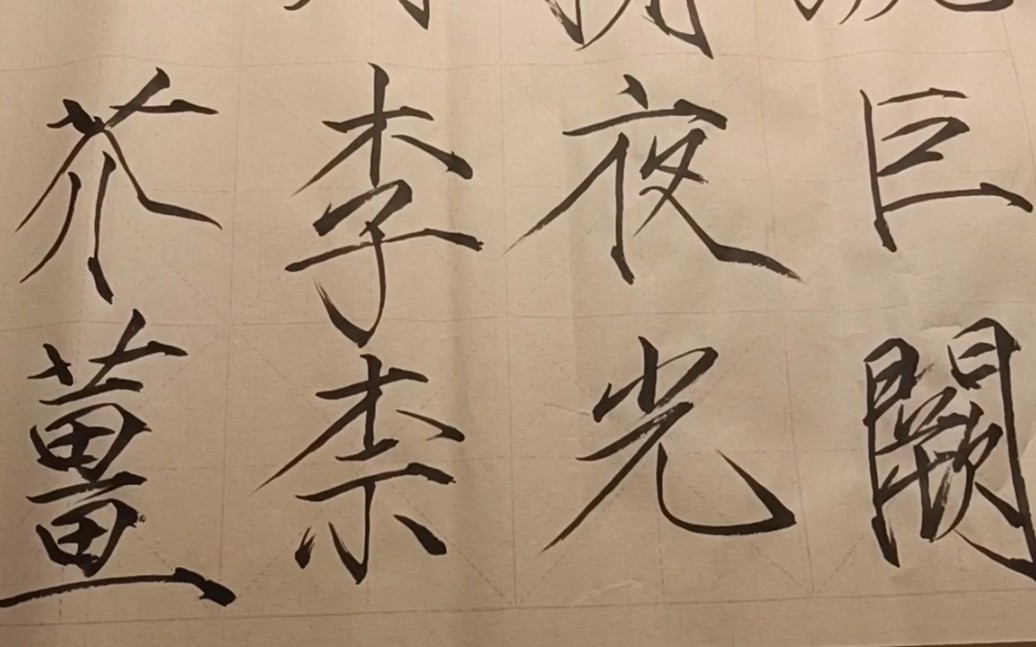 巨闕
夜光
李柰
芥薑